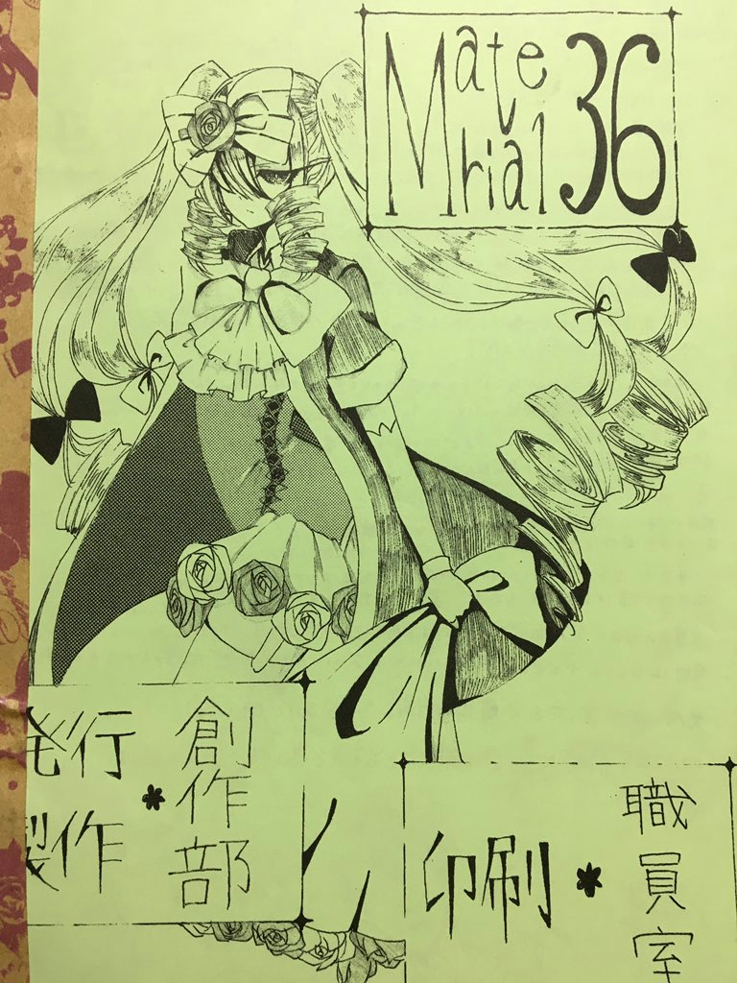 Material 36
発行
製作
*
創作部
印刷
*
職員室